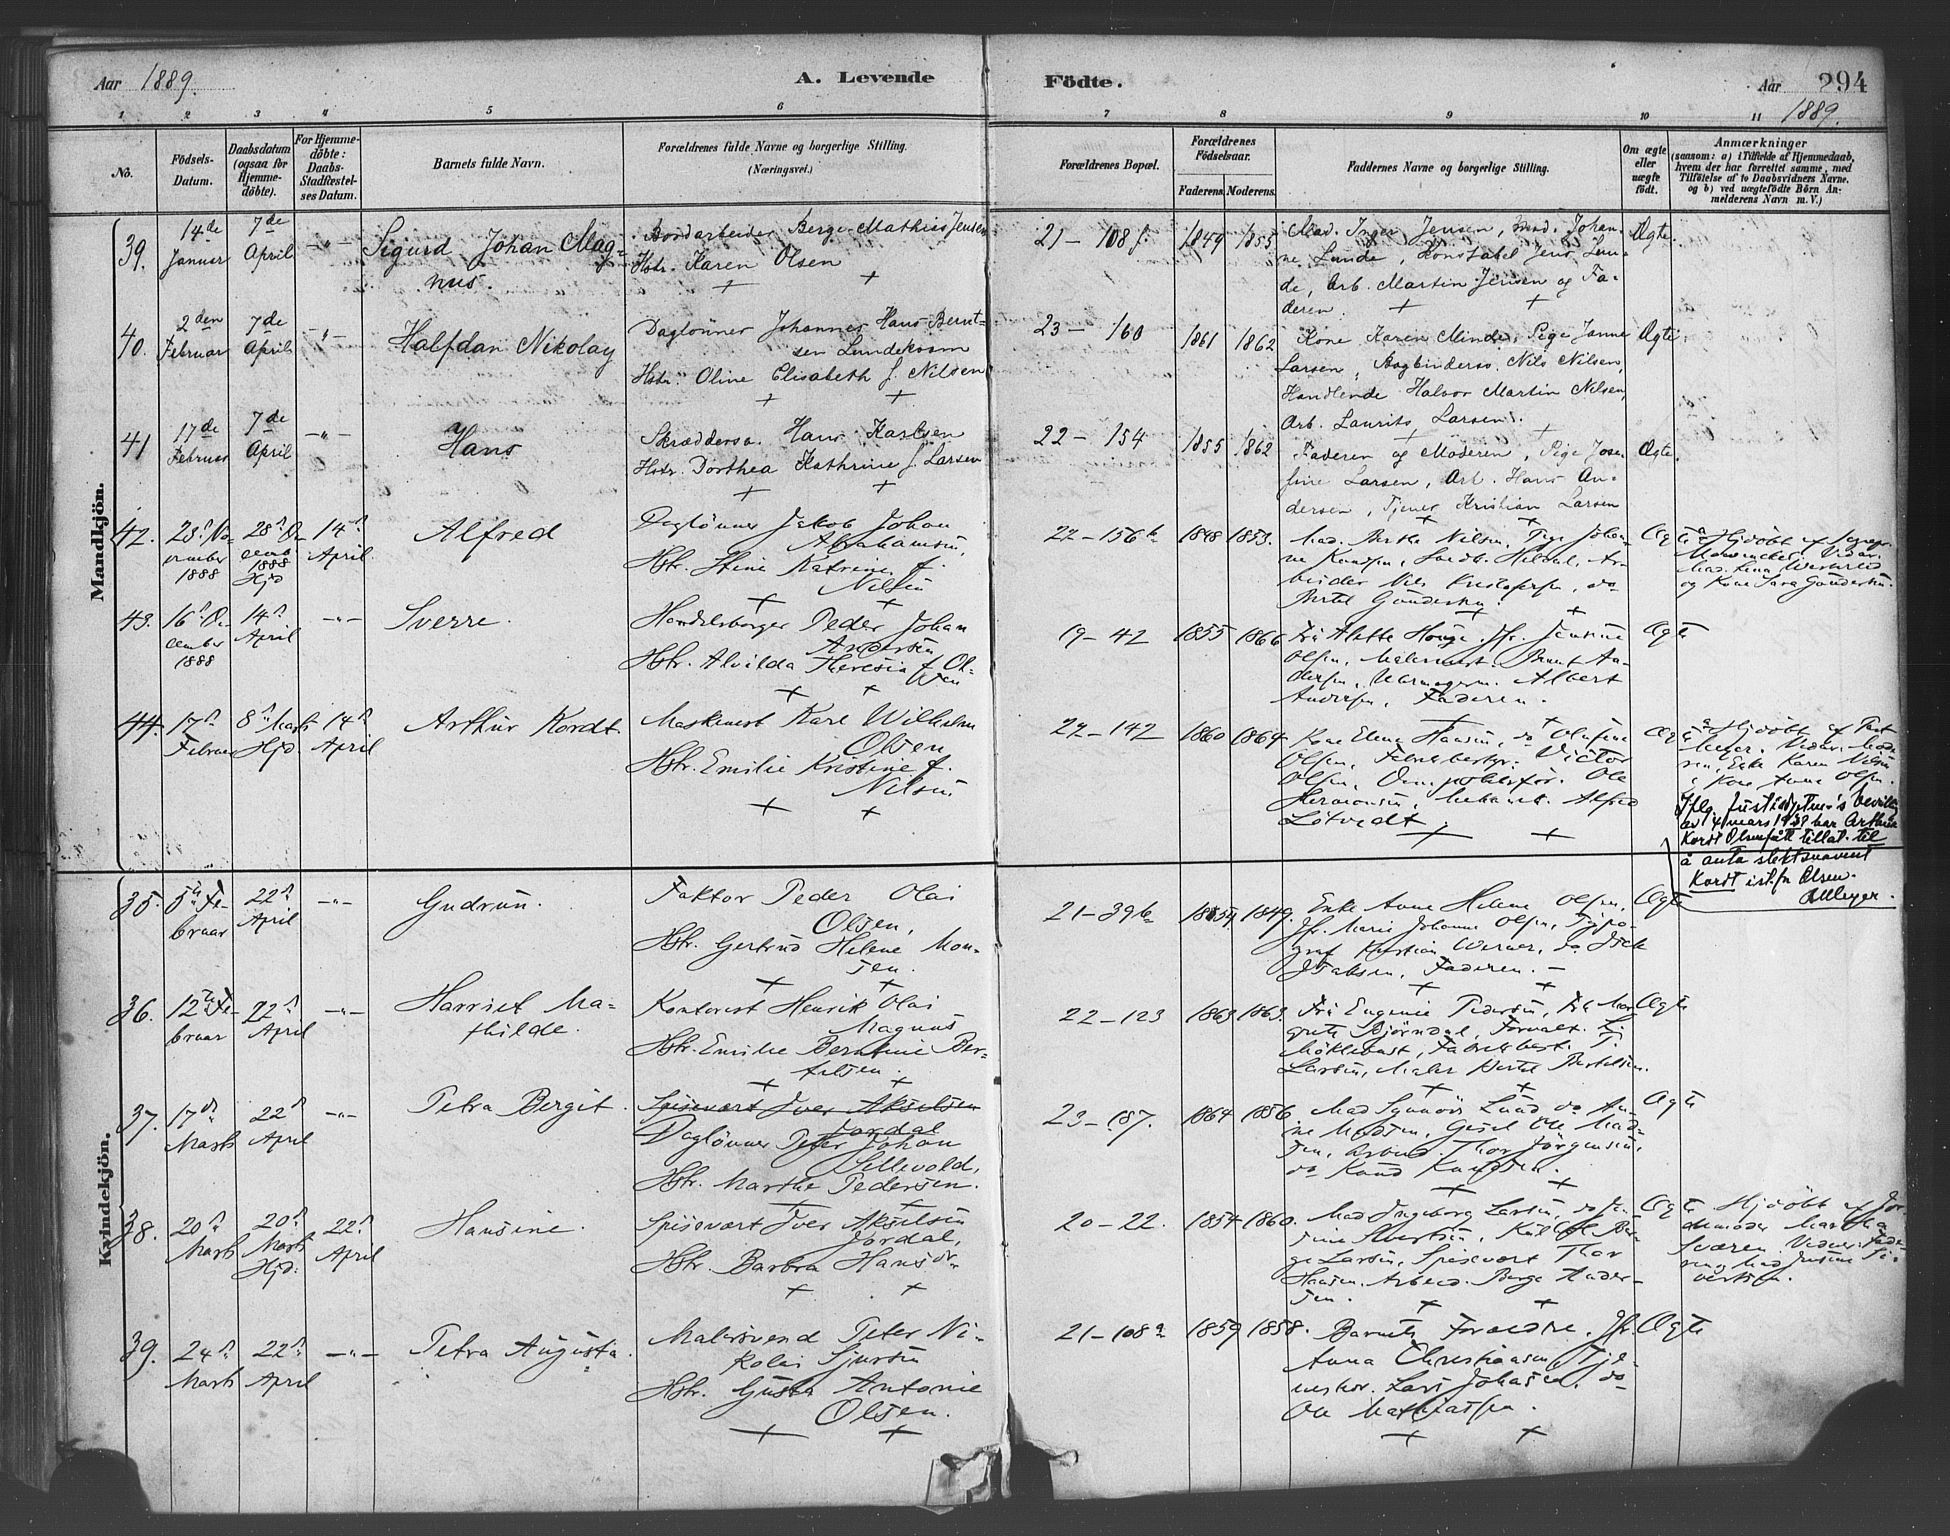 Aar 1889.
A. Levende
Födte.
Aar 1889.
294
1 2 3 4 5 6 7 8 9 10 11
No.
Födsels-Datum.
Daabsdatum (ogsaa for Hjemmedöbte).
For Hjemmedöbte: Daabs-Stadfæstelses Datum.
Barnets fulde Navn.
Forældrenes fulde Navne og borgerlige Stilling.
(Næringsvei.)
Forældrenes Bopæl.
Forældrenes Födselsaar.
Faderens. Moderens.
Faddernes Navne og borgerlige Stilling.
Om ægte eller uægte födt.
Anmærkninger
(saasom: a) i Tilfælde af Hjemmedaab,
hvem der har forrettet samme, med
Tilföielse af to Daabsvidners Navne.
og b) ved uægtefödte Börn Anmelderens Navn m. V.)
Mandkjön.
39. 14de Januar 7de April -"- Sigurd Johan Magnus.
Berge Mathias Jensen
Hstr. Karen Olsen
21 - 108 f. 1849 1855
Mad. Inger Jensen, Mad. Johanne Lunde, Konstabel Jens Lunde, Arb. Martin Jensen og Faderen.
Ægte.
40. 2den Februar 7de April -"- Halfdan Nikolay
Daglönner Johannes Hans Berntsen
Hstr. Oline Elisabeth f. Nilsen
23 - 160 1861 1862
Kone Karen Minde, Pige Janna
Larsen, Nils Nilsen,
Handlende Halvor Martin Nilsen,
Arb. Laurits Larsen.
Ægte.
41 17de Februar 7de April -"- Hans
Skræddersv. Hans Karlsen
Hstr. Dorthea Kathrine f. Larsen
22 - 154 1855 1862
Faderen og Moderen, Pige Josefine Larsen, Arb. Hans Andersen, Tjener Kristian Larsen
Ægte.
42. November 1888 1888 Hjd 14 April Alfred
Daglönner Jakob Johan
Abrahamsen,
Hstr. Stine Katrine f.
Nilsen
22 - 156 b 1848 1853.
Mad. Berthe Nilsen, Pige
Nils
Bertel Gundersen.
Ægte
Hjdöbt af
og Kone Sara Gundersen.
43. 16 December 1888 14 April -"- Sverre.
Handelsborger Peder Johan
Andersen
Hstr. Alvilda Theresia f. Olsen
19 - 42 1855 1866
Jfr. Jensine
Olsen, Bernt Andersen, Albert
Andersen, Faderen.
Ægte
44. 17 Februar 8 Marts Hjd. 14 April Arthur Kordt
Maskinist Karl Wilhelm
Olsen
Hstr. Emilie Kristine f.
Nilsen
22 - 142 1860 1864
Kone Elena Hansen, do Olufine
Olsen, Fabrikbestyr. Victor
Olsen, Ole
Hermansen, Alfred
Lötvedt
Ægte
Hjdöbt af
Meyer. Enke Karen Nilsen
Kone Anna Olsen.
Iflg. Justisdptm's bevilln.
av 4 mars har Arthur
Kordt Olsen fått tillat. til
å anta slektsnavnet
Kordt ist.fr Olsen.
Kvindekjön.
35. 5te Februar 22 April -"- Gudrun.
Faktor Peder Olai
Olsen,
Hstr. Gertrud Helene Monsen.
21 - 39 b 1849.
Enke Anne Helene Olsen,
Jfr. Marie Johanne Olsen, Typograf Kristian Werner, do
Faderen.
Ægte
36. 12te Februar 22 April -"- Harriet Mathilde.
Kontorist Henrik Olai
Magnus
Hstr. Emilie Berntine Bertelsen.
22 - 123 1863 1863.
Fru Eugenie Pedersen, Fru Margrete Björndal, Forvalt.
Möklebust, Fabrikbest.
Larsen, Maler Bertel Bertelsen.
Ægte
37. 17de Marts 22 April -"- Petra Bergit.
Spisevært Iver Akselsen
Jordal
Daglönner Peter Johan
Sellevold,
Hstr. Marthe Pedersen.
23 - 187. 1864 1856
Mad Synnöv Lund do Anne Madsen, Ole Madsen, Arbeid. Thor Jörgensen,
do Knud Knudsen.
Ægte
38. 20 Marts 20 Marts Hjd. 22 April Hansine.
Spisevært Iver Akselsen
Jordal,
Hstr. Barbra Hansdr.
20 - 22. 1854 1860.
Mad Ingeborg Larsen, do Jensine Sivertsen, Berge Larsen, Spisevært Thor
Hansen, Arbeid. Berge Andersen.
Ægte
Hjdöbt af Jordemoder Martha
Sværen. Vidner: Faderen og Mad Jensine Sivertsen.
39. 24 Marts 22 April -"- Petra Augusta.
Malersvend Peter Nikolai Sjursen
Hstr. Gusta Antonie
Olsen.
21 - 108 a 1859 1858.
Barnets Forældre, Jfr.
Anna Christiansen, Lars Johnsen, do
Ole Mathiassen.
Ægte